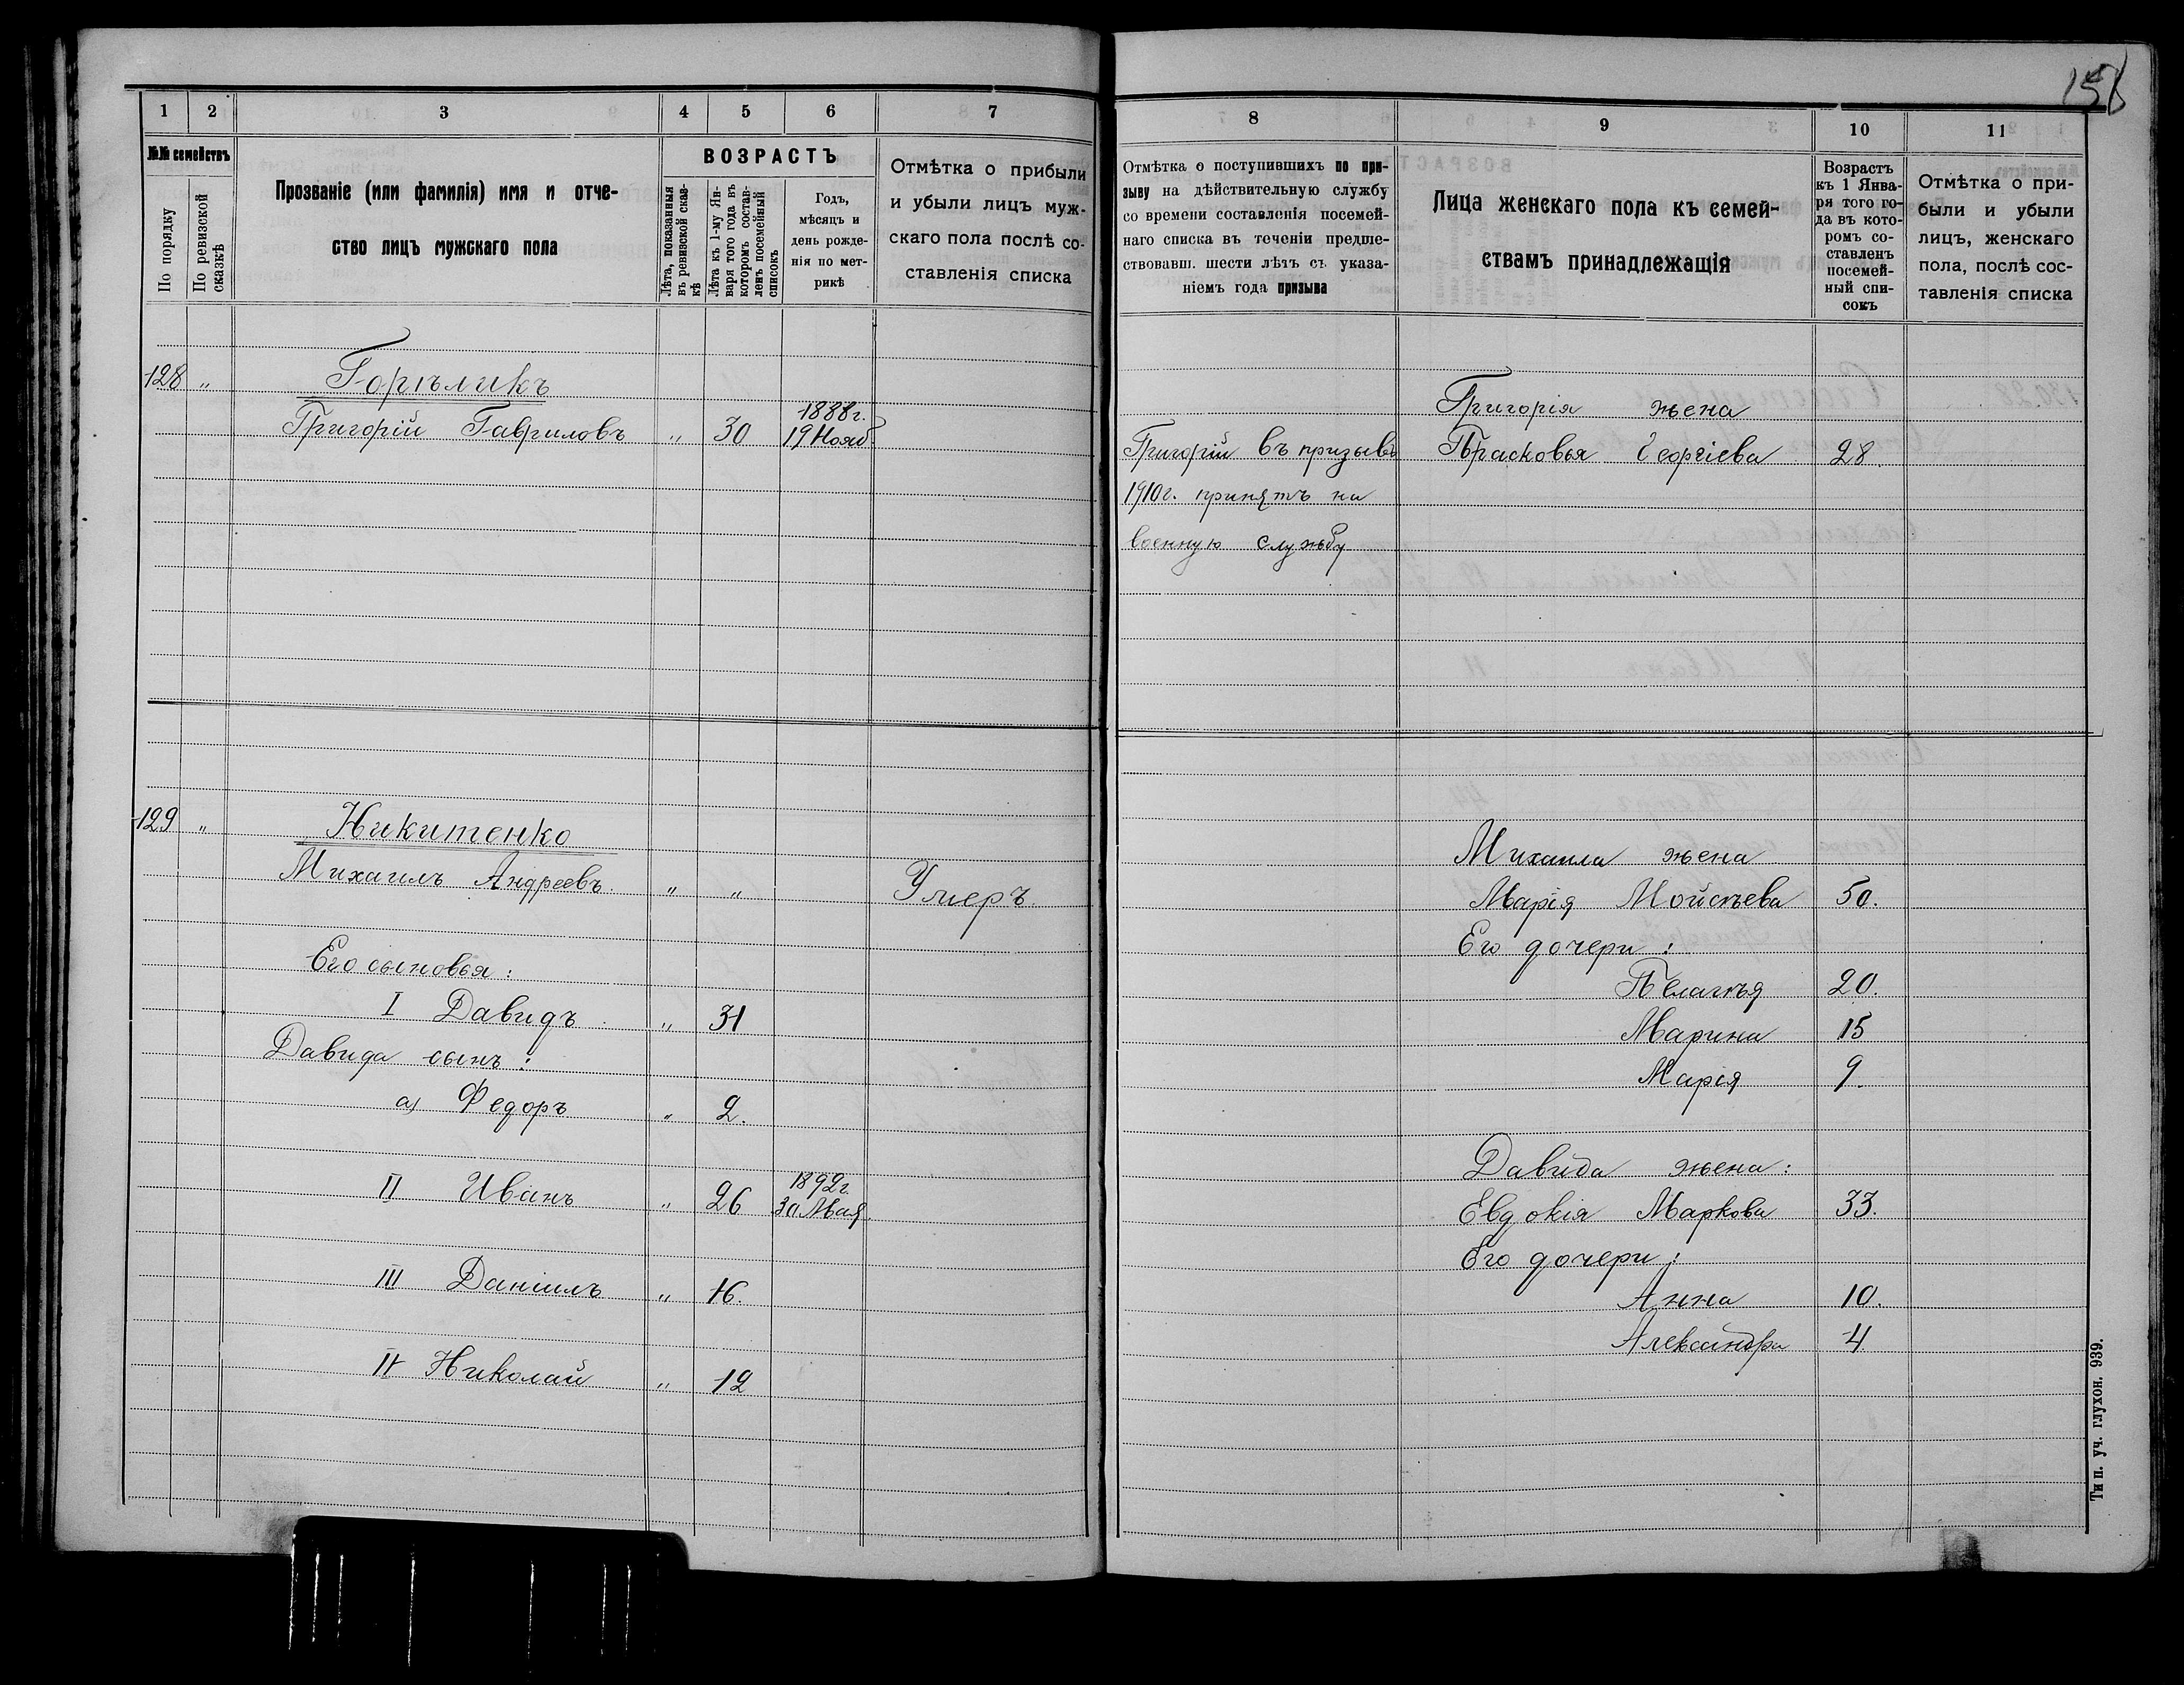 158
1 2 3 4 5 6 7
№№ семействъ
По порядку
По ревизской сказкѣ
Прозваніе (или фамилія) имя и отче-
ство лицъ мужскаго пола
ВОЗРАСТЪ
Лѣта, показанныя
въ ревизской сказ-
кѣ
Лѣта къ 1-му Ян-
варя того года въ
которомъ состав-
ленъ посемейный
списокъ
Годъ,
мѣсяцъ и
день рожде-
нія по мет-
рикѣ
Отмѣтка о прибыли
и убыли лицъ муж-
скаго пола послѣ со-
ставленія списка
128 „ Горѣликъ
Григорій Гавриловъ „ 30 1888г.
19 Нояб.
129 „ Никитенко
Михаилъ Андреевъ „ „ Умеръ
Его сыновья:
I Давидъ „ 31
Давида сынъ:
а) Федоръ „ 2.
II Иванъ „ 26 1892г.
30 Мая.
III Даніилъ „ 16.
IV Николай „ 12
8 9 10 11
Отмѣтка о поступившихъ по при-
зыву на дѣйствительную службу
со времени составленія посемей-
наго списка въ теченіи предше-
ствовавш. шести лѣтъ съ указа-
ніемъ года призыва
Лица женскаго пола къ семей-
ствамъ принадлежащія
Возрастъ
къ 1 Янва-
ря того го-
да въ кото-
ромъ со-
ставленъ
посемей-
ный спи-
сокъ
Отмѣтка о при-
были и убыли
лицъ, женскаго
пола, послѣ сос-
тавленія списка
Григорія жена
Григорій въ призывъ Прасковья Георгіева 28.
1910г. принятъ на
военную службу
Михаила жена
Марія Мойсѣева 50.
Его дочери:
Пелагъя 20.
Марина 15
Марія 9.
Давида жена:
Евдокія Маркова 33.
Его дочери:
Анна 10.
Александра 4.
Тип. уч. глухон. 939.